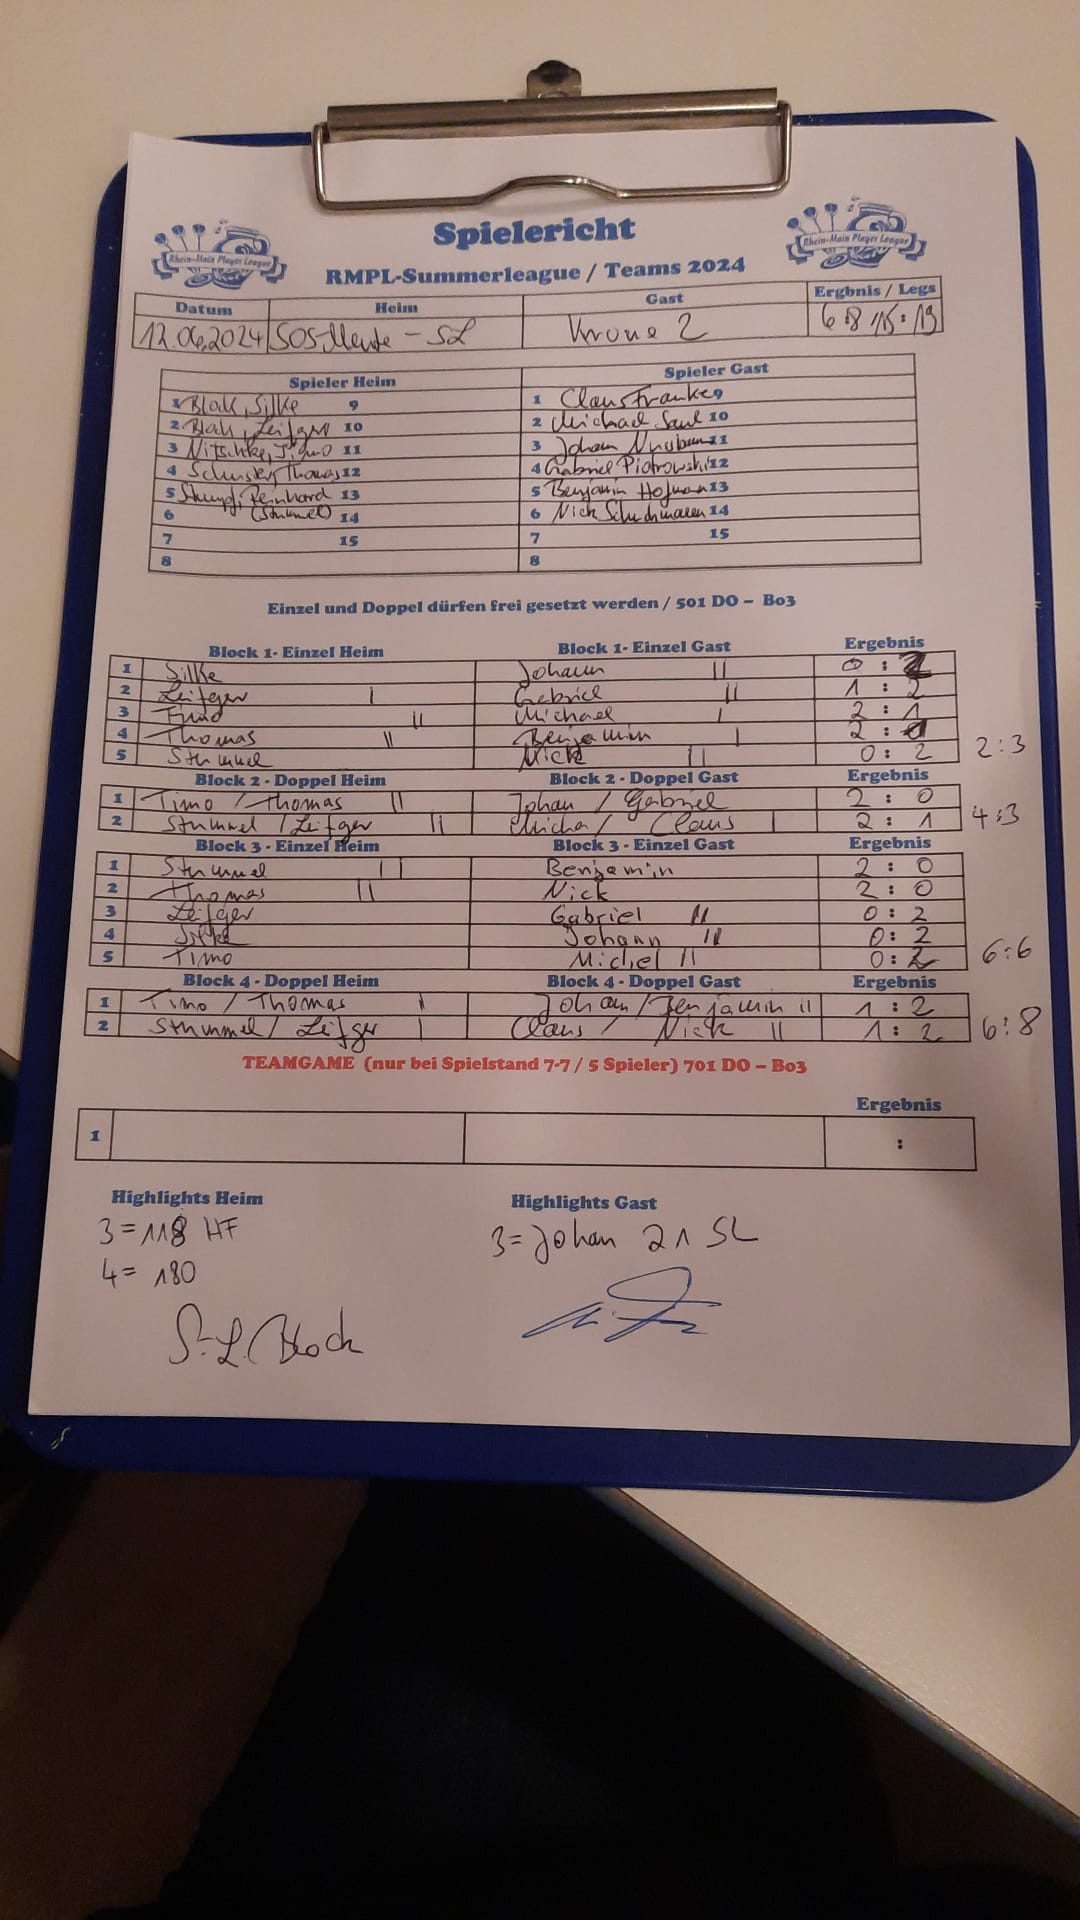 Spielericht
Rhein-Main Player League
Rhein-Main Player League
RMPL-Summerleague / Teams 2024
Datum Heim Gast Ergbnis / Legs
12.06.2024 SOS-Meute - SL Krone 2 6:8 /15:19
Spieler Heim Spieler Gast
1 Block, Silke 9 1 Claus Franke 9
2 Block, Leifger 10 2 Michael Saul 10
3 Nitschke, Timo 11 3 Johann 11
4 Schuster, Thomas 12 4 Gabriel Piotrowski 12
5 Stumpf, Reinhard 13 5 Benjamin Hofmann 13
6 (Stummel) 14 6 Nick Schuchmann 14
7 15 7 15
8 8
Einzel und Doppel dürfen frei gesetzt werden / 501 DO – Bo3
Block 1- Einzel Heim Block 1- Einzel Gast Ergebnis
1 Silke Johann II 0 : 2
2 Leifger I Gabriel II 1 : 2
3 Timo II Michael I 2 : 1
4 Thomas II Benjamin I 2 :
5 Stummel Nick II 0 : 2 2:3
Block 2 - Doppel Heim Block 2 - Doppel Gast Ergebnis
1 Timo / Thomas II Johan / Gabriel 2 : 0
2 Stummel / Leifger II Micha / Claus I 2 : 1 4:3
Block 3 - Einzel Heim Block 3 - Einzel Gast Ergebnis
1 Stummel II Benjamin 2 : 0
2 Thomas II Nick 2 : 0
3 Leifger Gabriel II 0 : 2
4 Silke Johann II 0 : 2
5 Timo Michel II 0 : 2 6:6
Block 4 - Doppel Heim Block 4 - Doppel Gast Ergebnis
1 Timo / Thomas I Johann / Benjamin II 1 : 2
2 Stummel / Leifger I Claus / Nick II 1 : 2 6:8
TEAMGAME (nur bei Spielstand 7-7 / 5 Spieler) 701 DO – Bo3
Ergebnis
1 :
Highlights Heim Highlights Gast
3 = 118 HF 3 = Johan 21 SL
4 = 180
S. L. Block